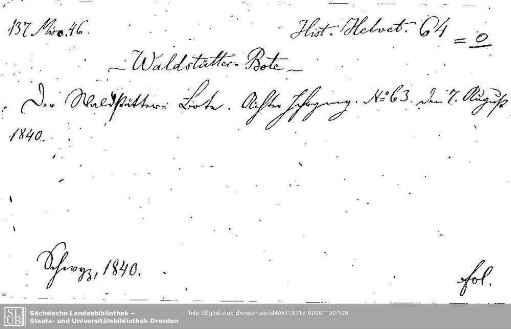 137 Misc. 46. Hist. Helvet. 64 = 0
Waldstätter-Bote
Der Waldstätter-Bote. Achter Jahrgang. No 63. den 7. August
1840.
Schwyz, 1840. fol.
Sächsische Landesbibliothek –
Staats- und Universitätsbibliothek Dresden